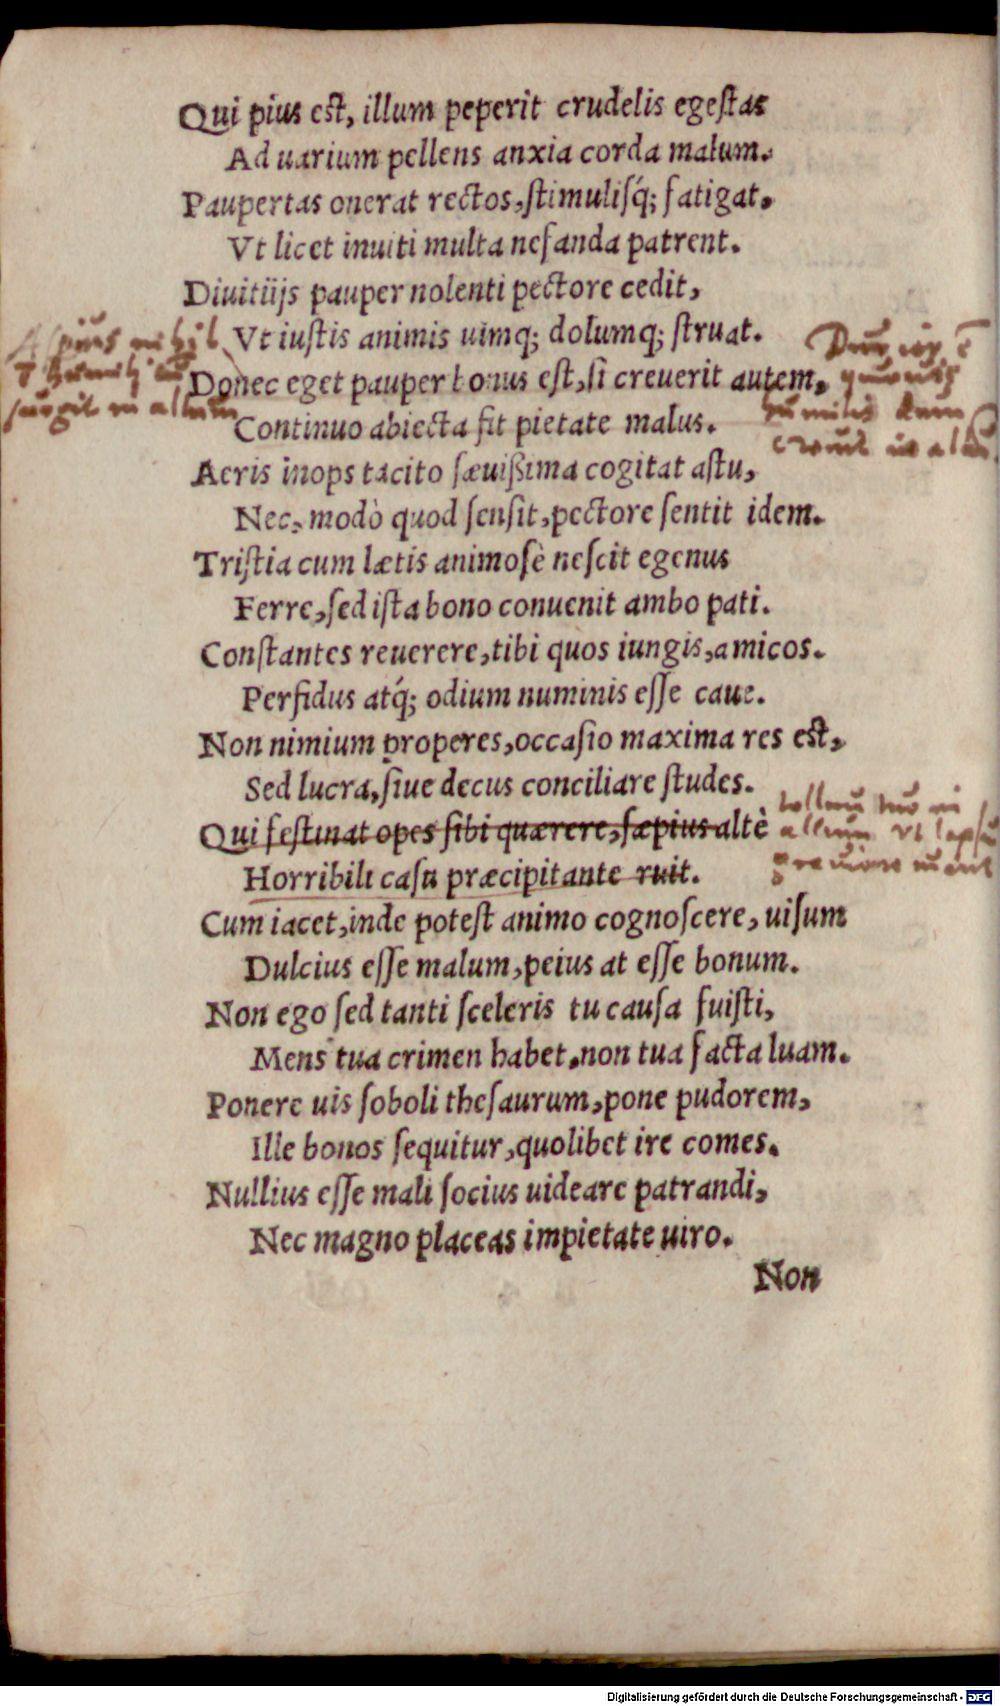 Qui pius est, illum peperit crudelis egeſtas
Ad uarium pellens anxia corda malum.
Paupertas onerat rectos, ſtimuliſq́; fatigat.
Vt licet inuiti multa nefanda patrent.
Diuitijs pauper nolenti pectore cedit,
Vt iuſtis animis uimq; dolumq; ſtruat.
Donec eget pauper bonus eſt, ſi creuerit autem,
Continuo abiecta fit pietate malus.
Aeris inops tacito ſæuißima cogitat aſtu,
Nec, modò quod ſenſit, pectore ſentit idem.
Triſtia cum lætis animoſè neſcit egenus
Ferre, ſed iſta bono conuenit ambo pati.
Conſtantes reuerere, tibi quos iungis, amicos.
Perfidus atq́; odium numinis eſſe caue.
Non nimium properes, occaſio maxima res eſt,
Sed lucra, ſiue decus conciliare ſtudes.
Qui feſtinat opes ſibi quærere, ſæpius altè
Horribili caſu præcipitante ruit.
Cum iacet, inde poteſt animo cognoſcere, uiſum
Dulcius eſſe malum, peius at eſſe bonum.
Non ego ſed tanti ſceleris tu cauſa fuiſti,
Mens tua crimen habet, non tua facta luam.
Ponere uis ſoboli theſaurum, pone pudorem,
Ille bonos ſequitur, quolibet ire comes.
Nullius eſſe mali ſocius uideare patrandi,
Nec magno placeas impietate uiro.
Non
Aſpius nihil
ſurgit in altum
humilis dum
tolluntur in
altum vt lapſu
grauiore ruant
Digitalisierung gefördert durch die Deutsche Forschungsgemeinschaft - DFG